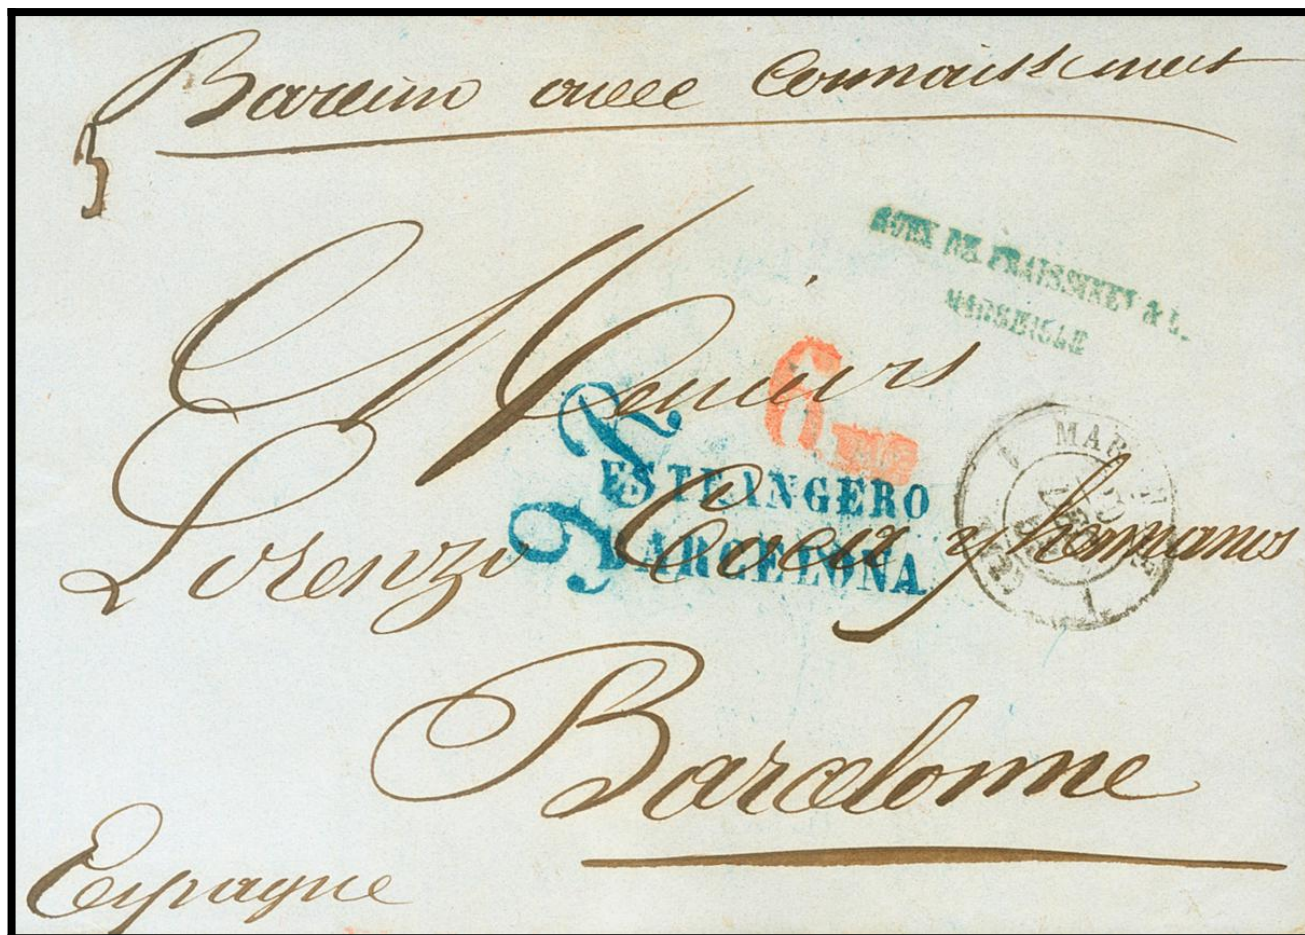 avec Connaissement
ROUX DE FRAISSINET & C.
MARSEILLE
Messieurs
6
ESTRANGERO
BARCELONA
MAR
Lorenzo y hermanos
Barcelonne
Espagne